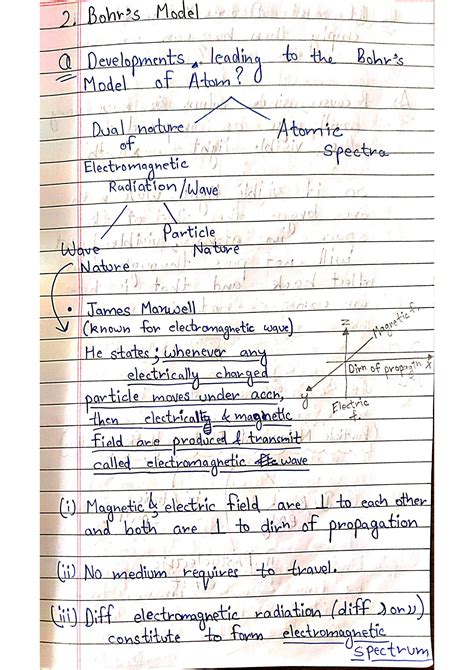 2. Bohr's Model
Q Developments leading to the Bohr's
Model of Atom?
Dual nature
of
Electromagnetic
Radiation/Wave
Atomic
Spectra
Wave
Nature
Particle
Nature
• James Maxwell
(known for electromagnetic wave)
He states; whenever any
electrically charged
particle moves under accn,
then electrically & magnetic
field are produced & transmit
called electromagnetic wave
Z
Magnetic f.
Dirn of propagn X
y
Electric
f.
(i) Magnetic & electric field are ⊥ to each other
and both are ⊥ to dirn of propagation
(ii) No medium requires to travel.
(iii) Diff electromagnetic radiation (diff λ or ν)
constitute to form electromagnetic
spectrum